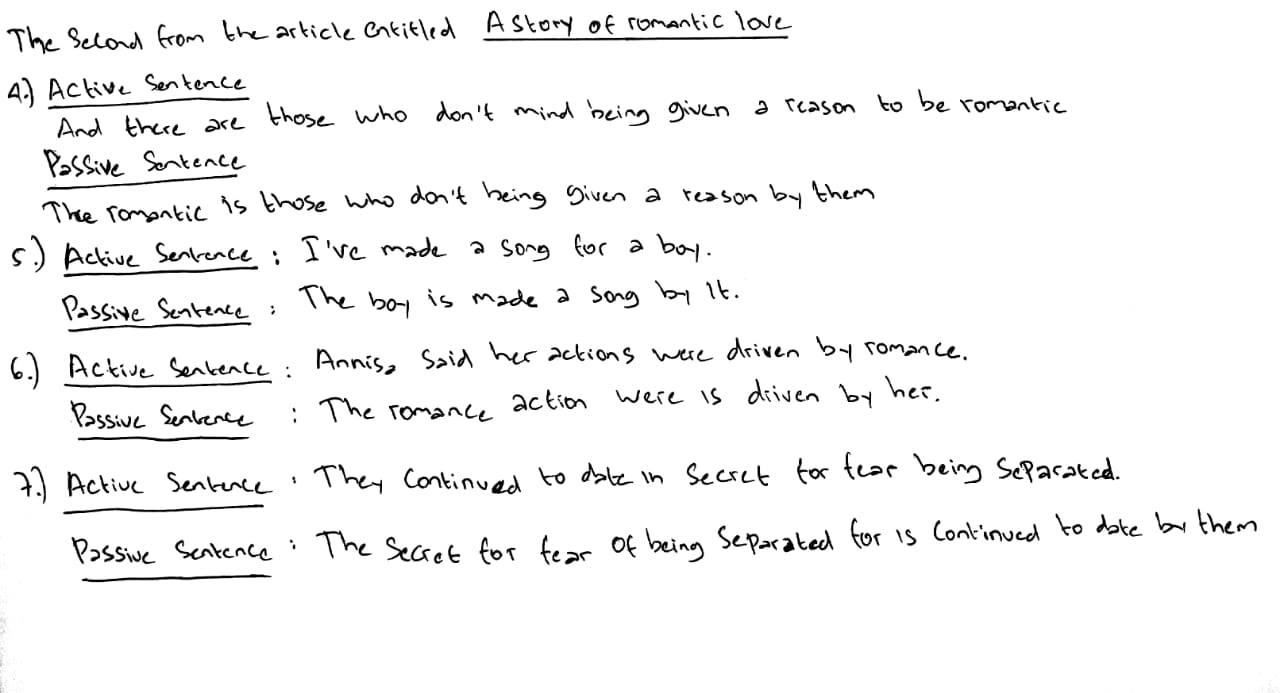 The Second from the article entitled A story of romantic love
4.) Active Sentence
And there are those who don't mind being given a reason to be romantic
Passive Sentence
The romantic is those who don't being given a reason by them
5.) Active Sentence : I've made a song for a boy.
Passive Sentence : The boy is made a song by it.
6.) Active Sentence : Annisa said her actions were driven by romance.
Passive Sentence : The romance action were is driven by her.
7.) Active Sentence : They Continued to date in secret for fear being separated.
Passive Sentence : The Secret for fear of being separated for is Continued to date by them